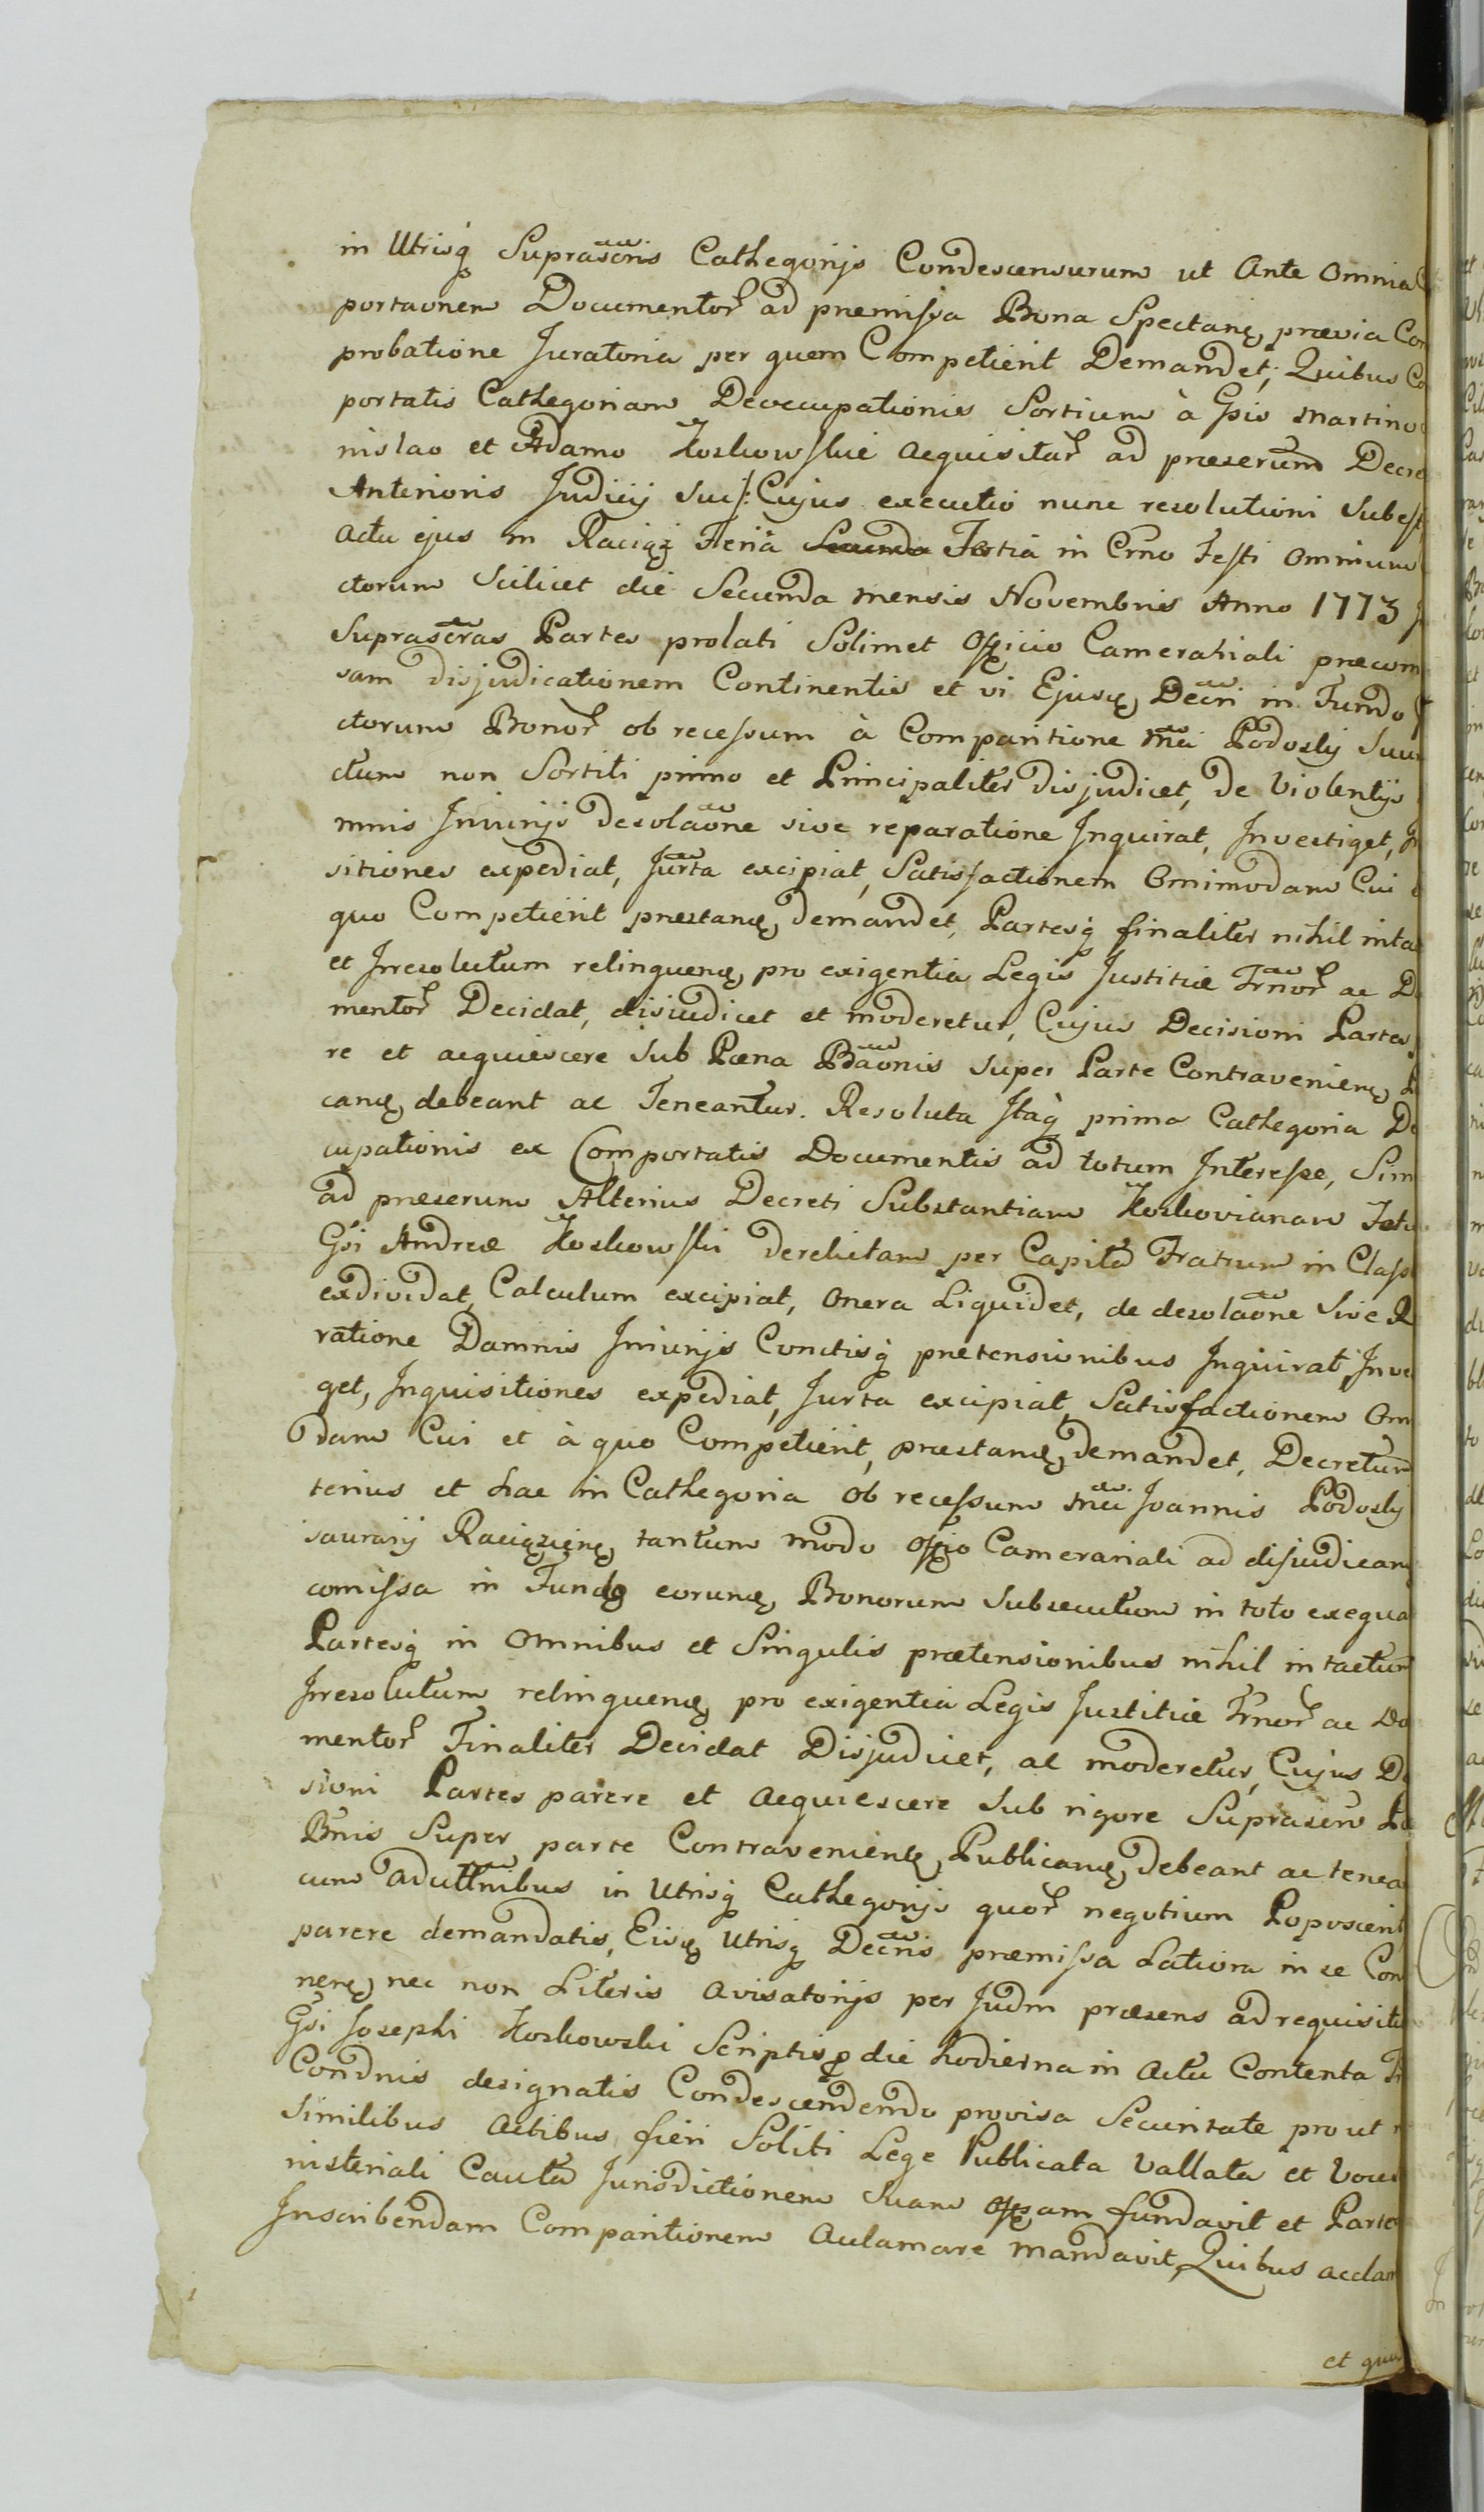 in Utrisq Suprascris Cathegorijs Condescensurum ut Ante Omnia
portaonem Documentor ad præmissa Bona Spectanę, prævia Con
probatione Juratoria per quem Competierit Demandet; Quibus Co
portatis Cathegoriam Deoccupationis Sortium à Gsis Martino
nislao et Adamo Koskowskie Acquisitar ad præserum Decre
Anterioris Judicij sui /: Cujus executio nunc resolutioni subest
Actu ejus in Raciąż Feria Secunda Tertia in Crno Festi Omnium
ctorum Scilicet die Secunda mensis Novembris Anno 1773
Suprascras Partes prolati Solimet Officio Camerahiali præcom
sam disjudicationem Continentis et vi Ejusę, Decri in Fundo
ctorum Bonor ob recessum à Comparitione Mci Podosky Suu
ctum non Sortiti primo et Principaliter disjudicet, de Violentijs
mnis Injurijs desolaone sive reparatione Inquirat, Investiget, In
sitiones expediat, Jurta excipiat, Satisfactionem Omimodam Cui
quo Competierit præstanę, demandet, Partesq finaliter nihil inta
et Irresolutum relinquenę, pro exigentia Legis Justitiæ Trnor ac D
mentor Decidat, disiudicet et moderetur, Cujus Decisioni Partes
re et acquiescere sub Pæna Baonis super Parte Contravenienę,
canę, debeant ac Teneantur. Resoluta Itaq prima Cathegoria De
cupationis ex Comportatis Documentis ad totum Interesse, Sim
ad præserum Alterius Decreti Substantiam Koskovianam Fato
Gsi Andreæ Koskowski derelictam per Capita Fratrum in Class
exdividat, Calculum excipiat, Onera Liquidet, de desolaone Sive Re
ratione Damnis Injurijs Cunctisq prætensionibus Inquirat, Inve
get, Inquisitiones expediat, Jurta excipiat, Satisfactionem Om
dam Cui et à quo Competierit, præstanę, demandet, Decretum
terius et hac in Cathegoria ob recessum Mci Joannis Podosky
saurarij Raciązienę, tantum modo Offio Camerariali ad disjudican
comissa in Fundo eorunę, Bonorum subsecutum in toto exequa
Partesq in Omnibus et Singulis prætensionibus nihil intactum
Irresolutum relinquenę, pro exigentia Legis Justitiæ Trnor ac Do
mentor Finaliter Decidat Disjudicet, ac moderetur, Cujus De
sioni Partes parere et acquiescere sub rigore Suprascri Pæ
Bnis Super parte Contravenienę, Publicanę, debeant ac tenea
cum aduttnibus in Utrisq Cathegorijs quor negotium Poposcerit
parere demandatis, Eisę, Utrisq Decris præmissa Latiora in se Con
nenę, nec non Literis Avisatorijs per Judm præsens ad requisitu
Gsi Josephi Koskowski Scriptis p die hodierna in Actu Contenta
Condnis designatis Condescendendo provisa Securitate prout
similibus Actibus fieri Soliti Lege Publicata Vallata et Voce
nisteriali Cauta Jurisdictionem Suam Offsam fundavit et Parte
Inscribendam Comparitionem Aclamare mandavit, Quibus acclam
et quu